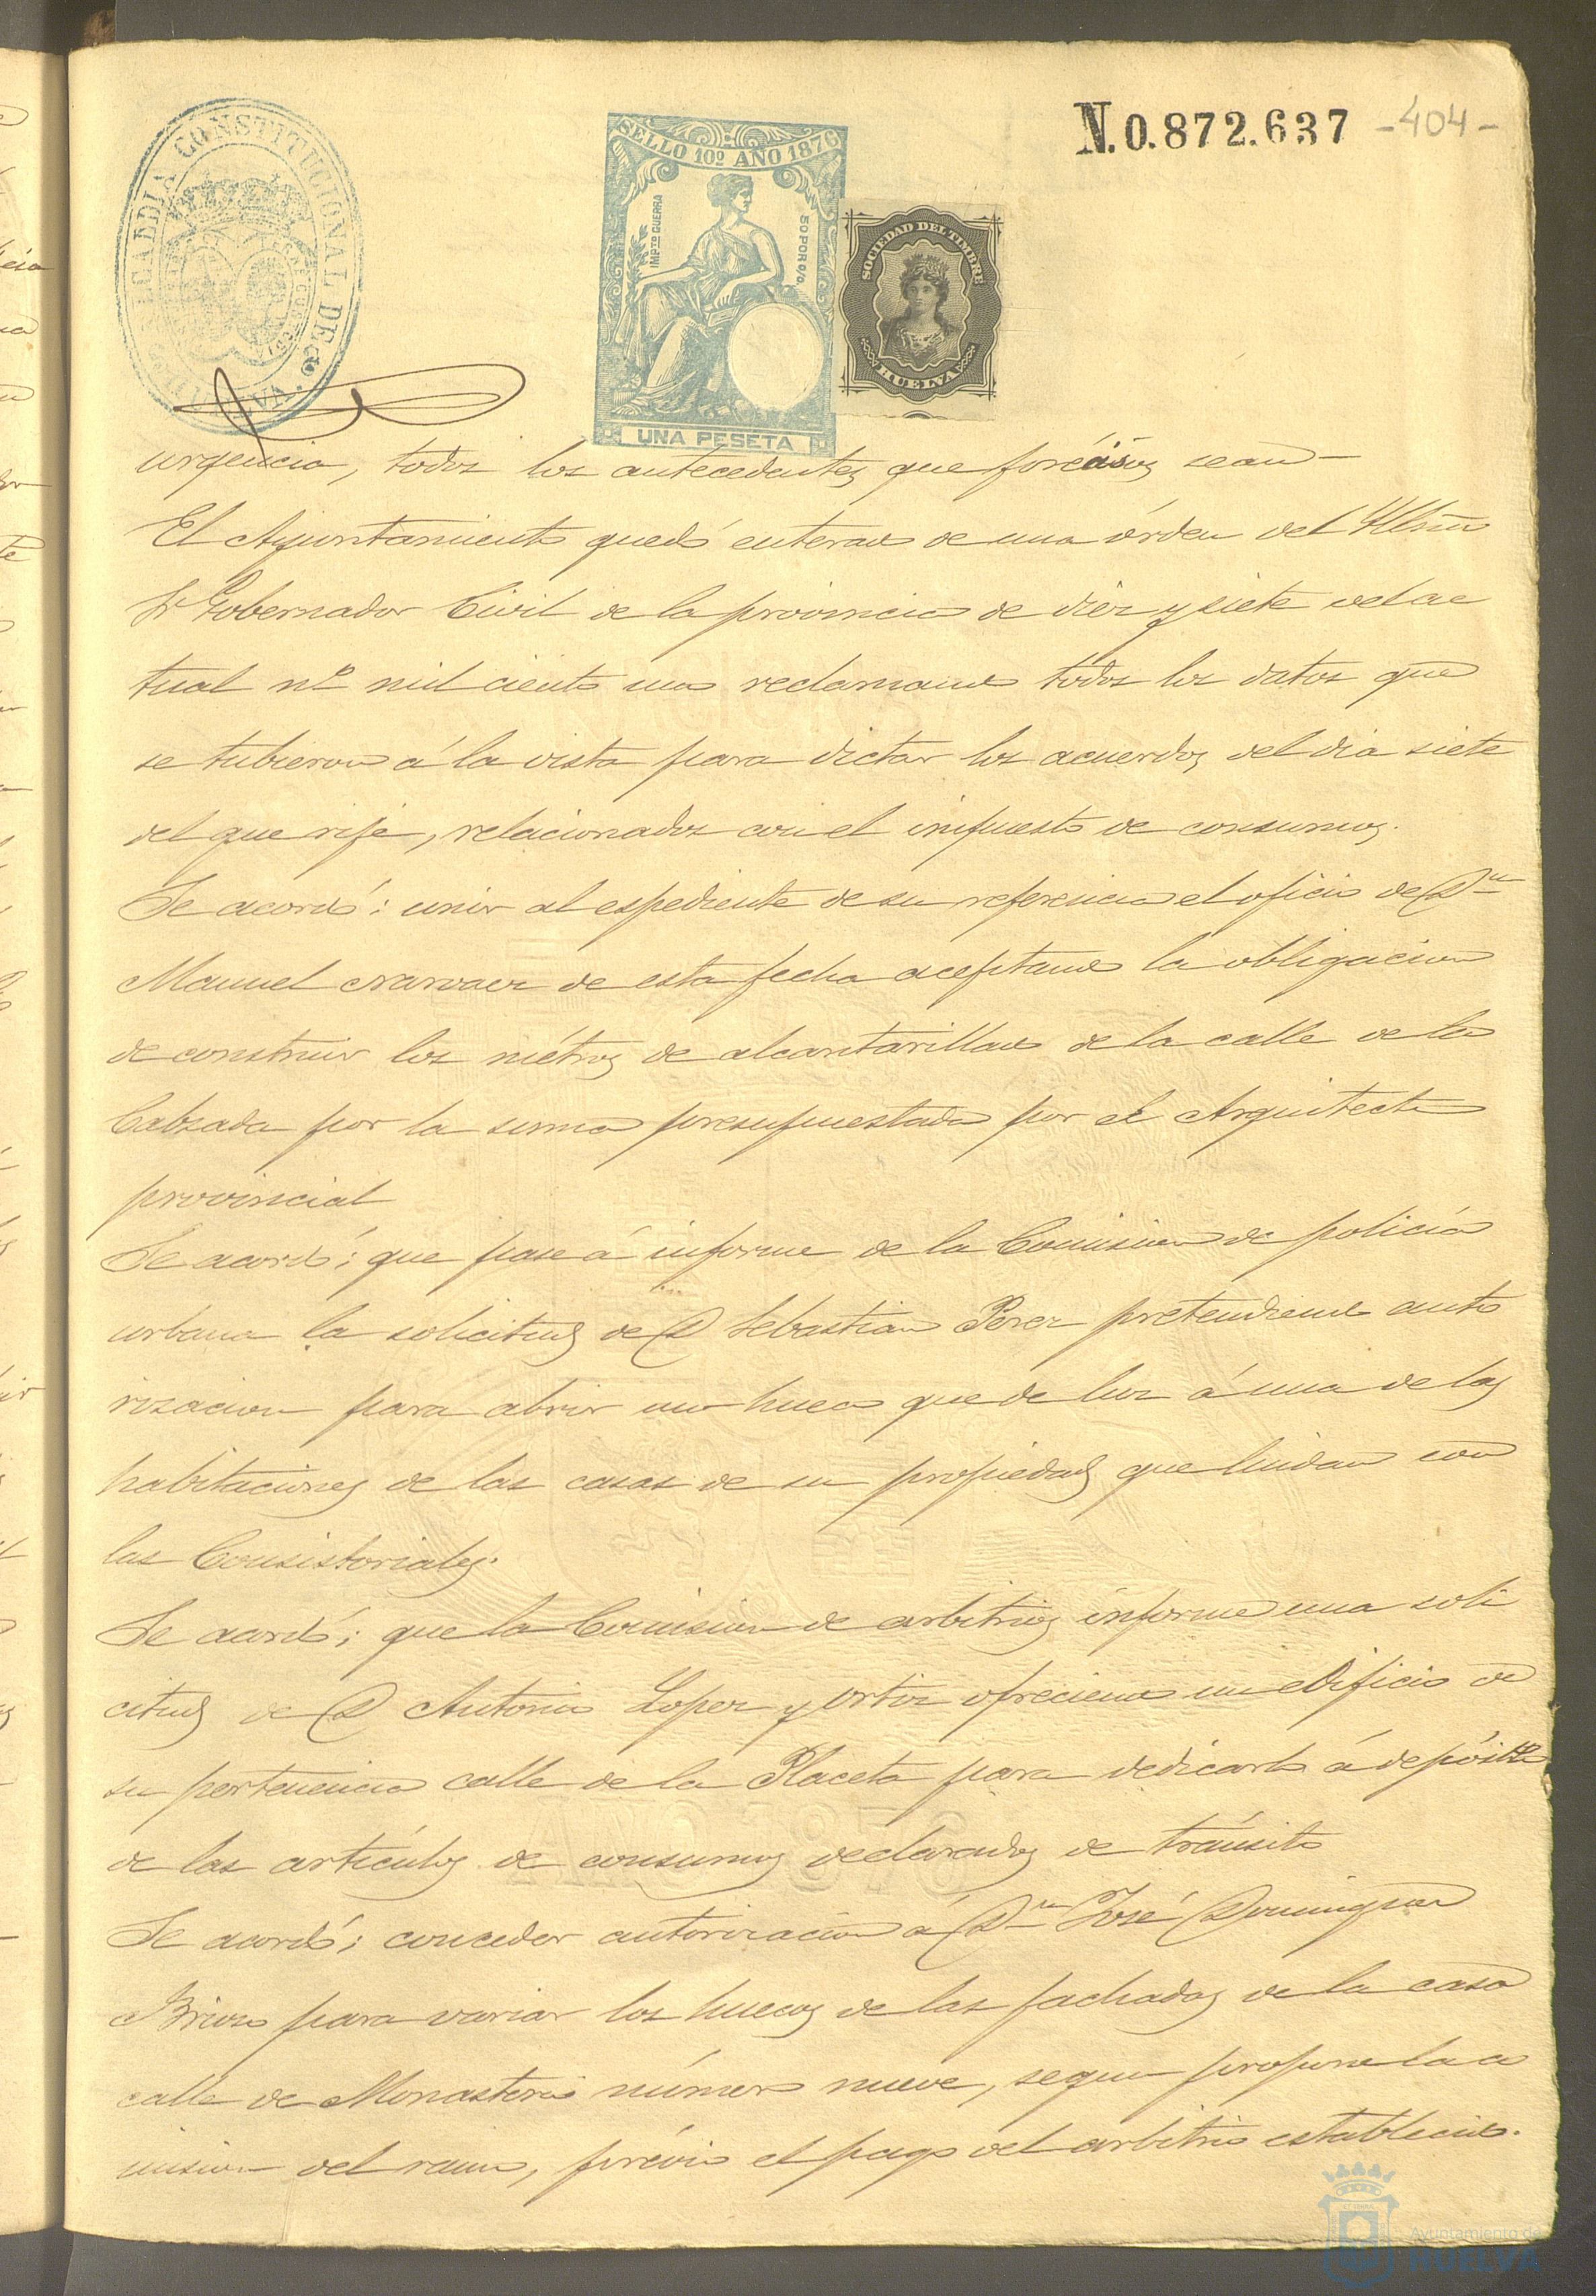 N. 0.872.637 -404-
ALCALDIA CONSTITUCIONAL DE HUELVA.
SELLO 10º AÑO 1876
IMPTO GUERRA
50 POR 0/0
UNA PESETA
SOCIEDAD DEL TIMBRE
HUELVA
urgencia, todos los antecedentes que precisos sean
El Ayuntamiento quedó enterado de una órden del Iltmo
Sr Gobernador Civil de la provincia de diez y siete del ac
tual nº mil ciento uno reclamando todos los datos que
se tubieron á la vista para dictar los acuerdos del dia siete
del que rije, relacionados con el impuesto de consumos.
Se acordó: unir al espediente de su referencia el oficio de Dn
Manuel Narvaez de esta fecha aceptando la obligacion
de construir los métros de alcantarillado de la calle de la
Calzada por la suma presupuestada por el Arquitecto
provincial
Se acordó: que pase á informe de la Comision de policia
urbana la solicitud de D Sebastian Perez pretendiendo auto
rizacion para abrir un hueco que de luz á una de las
habitaciones de las casas de su propiedad que lindan con
las Consistoriales.
Se acordó; que la Comision de arbitrios informe una soli
citud de D Antonio Lopez y Ortiz ofreciendo un edificio de
su pertenencia calle de la Placeta para dedicarlo á depósito
de los artículos de consumos declarados de tránsito
Se acordó; conceder autorizacion á Dn José Dominguez
para variar los huecos de las fachadas de la casa
calle de Monasterio número nueve, segun propone la co
mision del ramo, prévio el pago del arbitrio establecido.
AÑO 1876
Ayuntamiento de
HUELVA